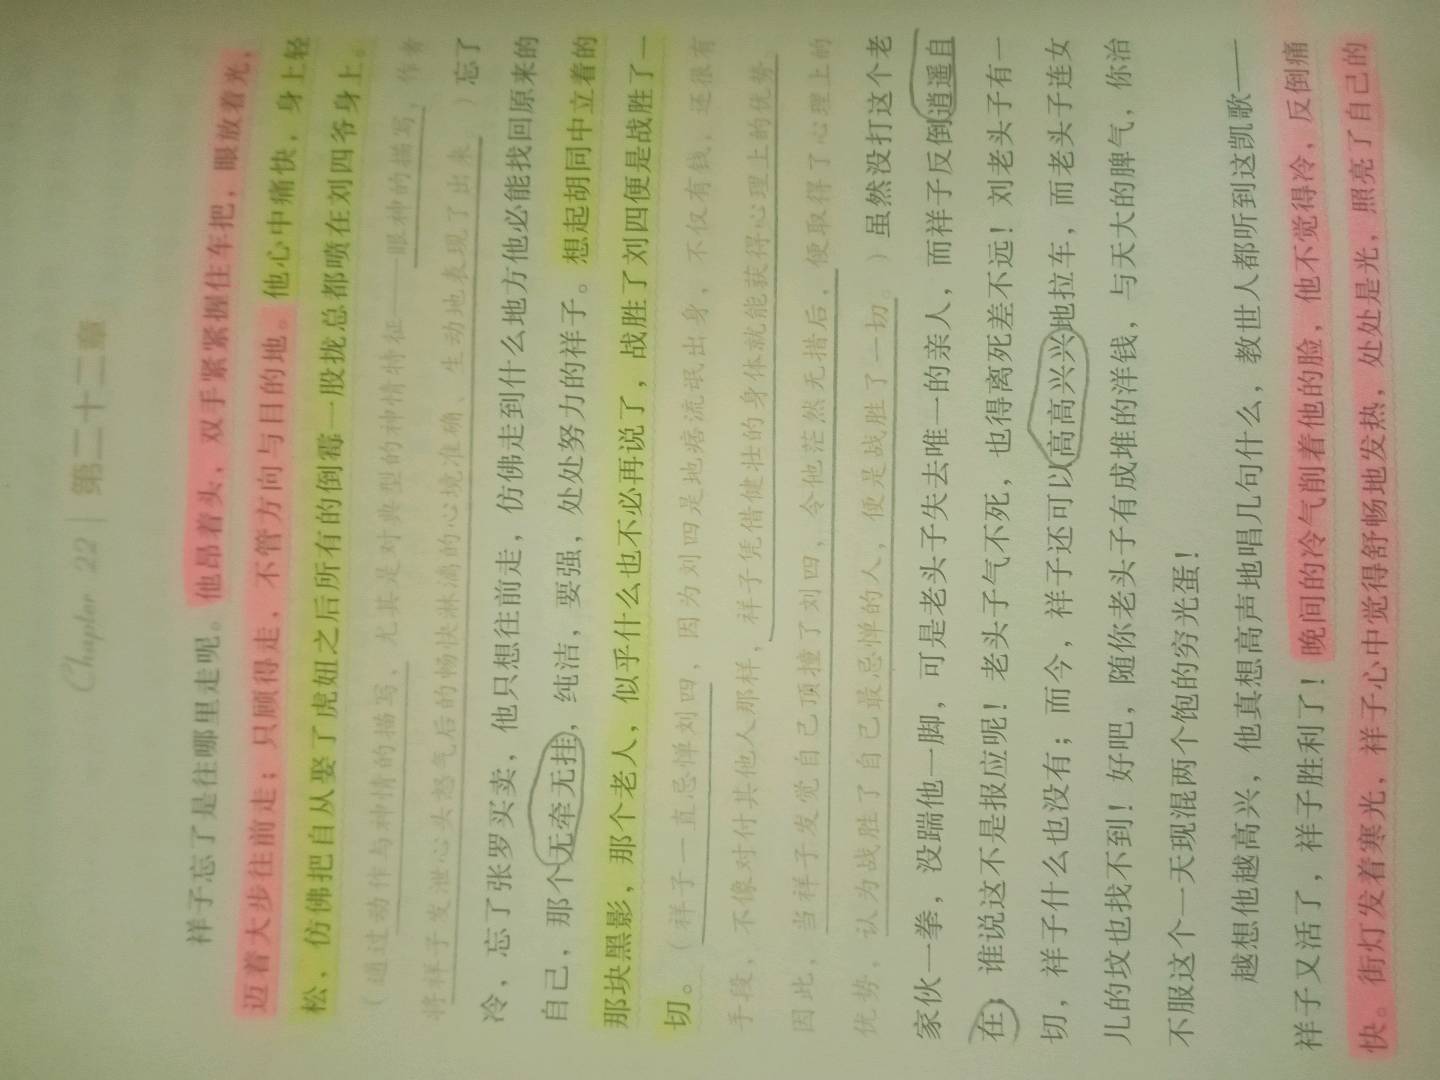 Chapter 22 | 第二十二章
祥子忘了是往哪里走呢。他昂着头，双手紧紧握住车把，眼放着光，
迈着大步往前走；只顾得走，不管方向与目的地。他心中痛快，身上轻
松，仿佛把自从娶了虎妞之后所有的倒霉一股拢总都喷在刘四爷身上。
（通过动作与神情的描写，尤其是对典型的神情特征——眼神的描写，作者
将祥子发泄心头怒气后的畅快淋漓的心境准确、生动地表现了出来。）忘了
冷，忘了张罗买卖，他只想往前走，仿佛走到什么地方他必能找回原来的
自己，那个无牵无挂，纯洁，要强，处处努力的祥子。想起胡同中立着的
那块黑影，那个老人，似乎什么也不必再说了，战胜了刘四便是战胜了一
切。（祥子一直忌惮刘四，因为刘四是地痞流氓出身，不仅有钱，还很有
手段，不像对付其他人那样，祥子凭借健壮的身体就能获得心理上的优势。
因此，当祥子发觉自己顶撞了刘四，令他茫然无措后，便取得了心理上的
优势，认为战胜了自己最忌惮的人，便是战胜了一切。）虽然没打这个老
家伙一拳，没踹他一脚，可是老头子失去唯一的亲人，而祥子反倒逍遥自
在；谁说这不是报应呢！老头子气不死，也得离死差不远！刘老头子有一
切，祥子什么也没有；而今，祥子还可以高高兴兴地拉车，而老头子连女
儿的坟也找不到！好吧，随你老头子有成堆的洋钱，与天大的脾气，你治
不服这个一天现混两个饱的穷光蛋！
越想他越高兴，他真想高声地唱几句什么，教世人都听到这凯歌——
祥子又活了，祥子胜利了！晚间的冷气削着他的脸，他不觉得冷，反倒痛
快。街灯发着寒光，祥子心中觉得舒畅地发热，处处是光，照亮了自己的